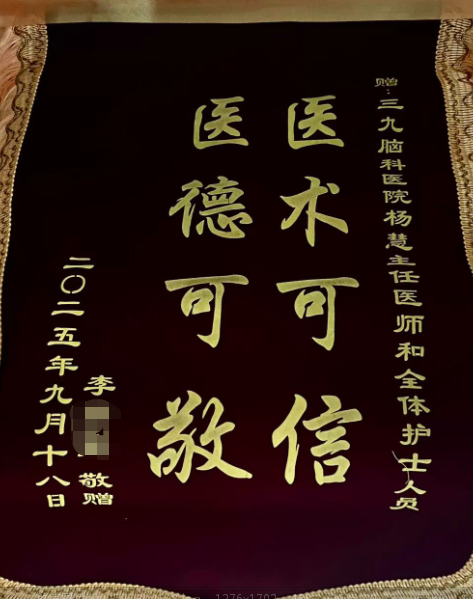 赠：三九脑科医院杨慧主任医师和全体护士人员
医术可信
医德可敬
李 敬赠
二〇二五年九月十八日